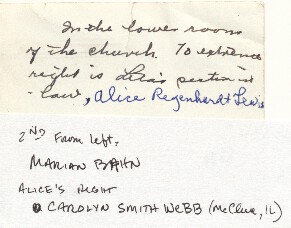 In the lower room
of the church. To extreme
right is Lita's sister-in
law, Alice Regenhardt Lewis
2ND From left,
MARIAN BAHN
ALICE'S RIGHT
CAROLYN SMITH WEBB (McClure, IL)